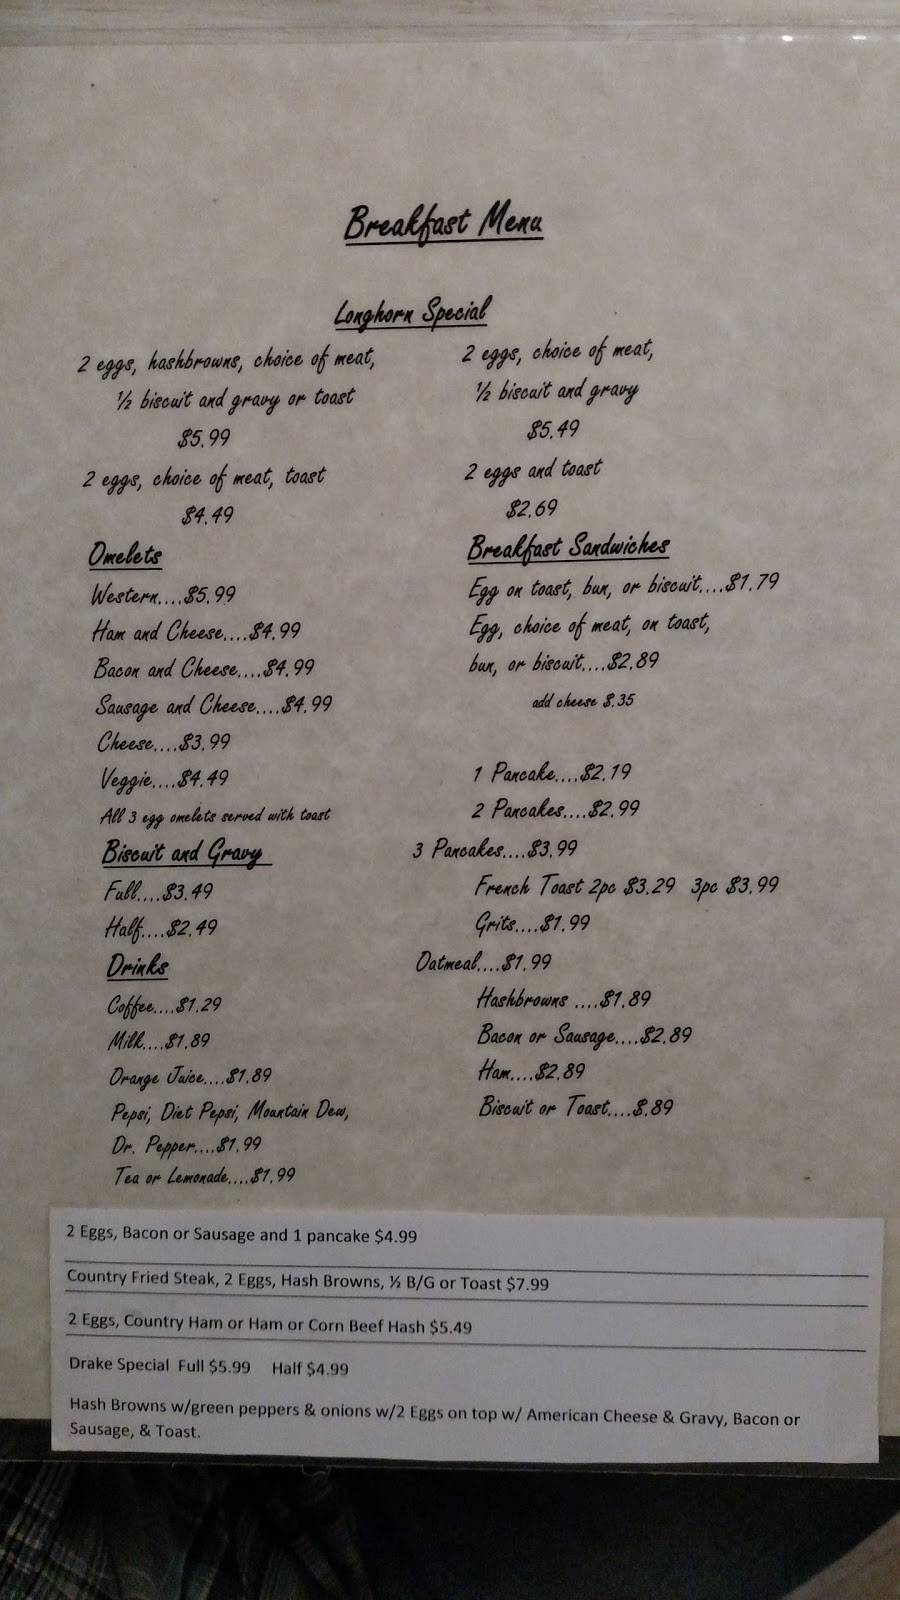 Breakfast Menu
Longhorn Special
2 eggs, hashbrowns, choice of meat,
½ biscuit and gravy or toast
$5.99
2 eggs, choice of meat, toast
$4.49
2 eggs, choice of meat,
½ biscuit and gravy
$5.49
2 eggs and toast
$2.69
Omelets
Western....$5.99
Ham and Cheese....$4.99
Bacon and Cheese....$4.99
Sausage and Cheese....$4.99
Cheese....$3.99
Veggie....$4.49
All 3 egg omelets served with toast
Biscuit and Gravy
Full....$3.49
Half....$2.49
Drinks
Coffee....$1.29
Milk....$1.89
Orange Juice....$1.89
Pepsi, Diet Pepsi, Mountain Dew,
Dr. Pepper....$1.99
Tea or Lemonade....$1.99
Breakfast Sandwiches
Egg on toast, bun, or biscuit....$1.79
Egg, choice of meat, on toast,
bun, or biscuit....$2.89
add cheese $.35
1 Pancake....$2.19
2 Pancakes....$2.99
3 Pancakes....$3.99
French Toast 2pc $3.29 3pc $3.99
Grits....$1.99
Oatmeal....$1.99
Hashbrowns ....$1.89
Bacon or Sausage....$2.89
Ham....$2.89
Biscuit or Toast....$.89
2 Eggs, Bacon or Sausage and 1 pancake $4.99
Country Fried Steak, 2 Eggs, Hash Browns, ½ B/G or Toast $7.99
2 Eggs, Country Ham or Ham or Corn Beef Hash $5.49
Drake Special Full $5.99 Half $4.99
Hash Browns w/green peppers & onions w/2 Eggs on top w/ American Cheese & Gravy, Bacon or
Sausage, & Toast.